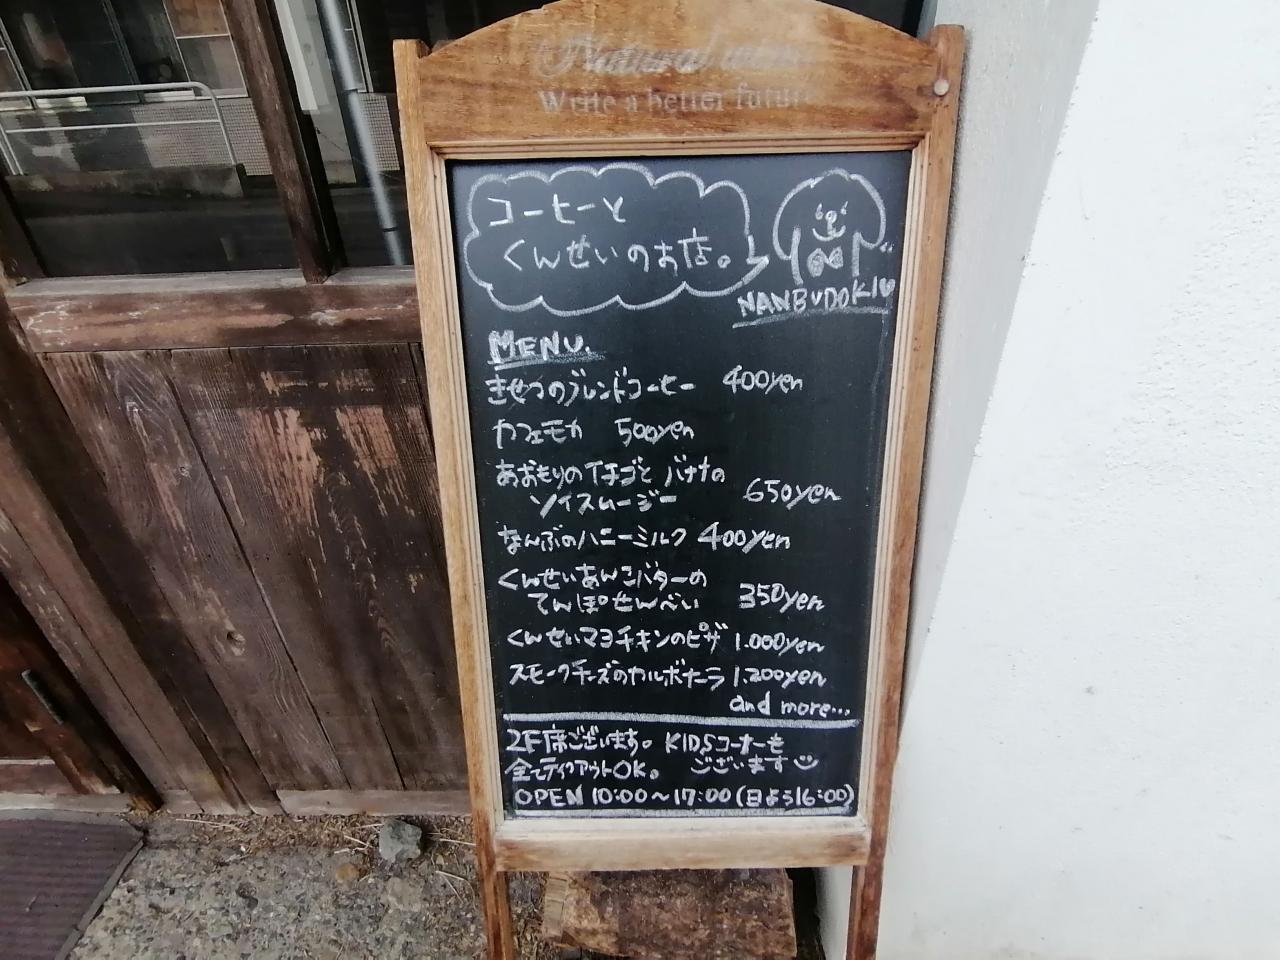 Natural
Write a better future
コーヒーと
くんせいのお店。
NANBUDOKI
MENU.
きせつのブレンドコーヒー 400yen
カフェモカ 500yen
あおもりのイチゴとバナナの
ソイスムージー 650yen
なんぶのハニーミルク 400yen
くんせいあんこバターの
てんぽせんべい 350yen
くんせいマヨチキンのピザ 1.000yen
スモークチーズのカルボナーラ 1.200yen
and more...
2F席ございます。 KIDSコーナーも
全てテイクアウトOK。 ございます
OPEN 10:00～17:00 (日よう16:00)